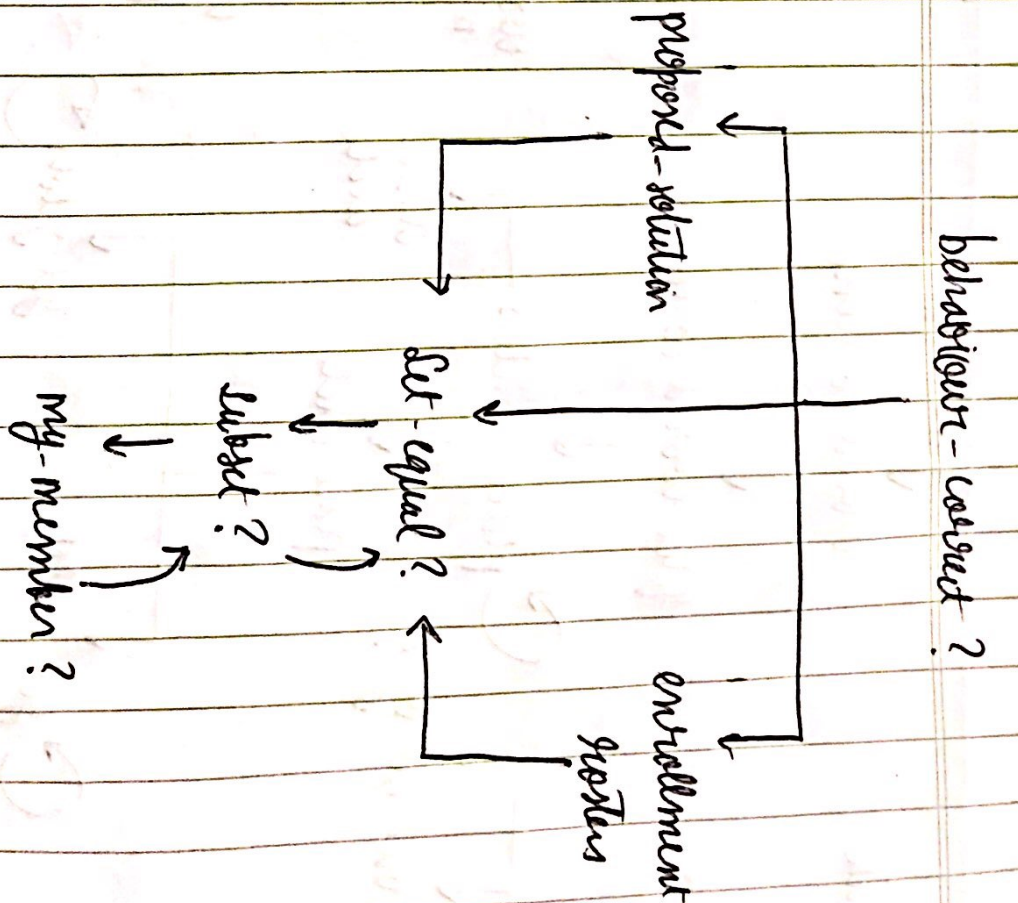 behaviour-correct?
proposed-solution
enrollment
rosters
Set-equal?
subset?
my-member?